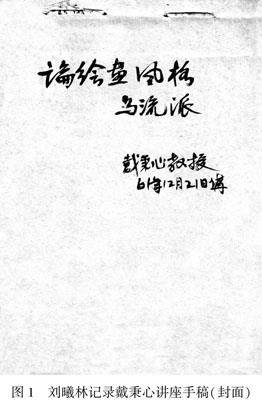 論绘畫風格
与流派
戴秉心教授
61年12月21日講
图 1 刘曦林记录戴秉心讲座手稿(封面)